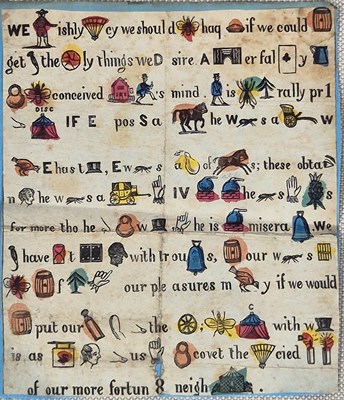 WE ishly cy we should haq if we could
get the ly things we D sire A er fal y
conceived 's mind. is rally pr1
DISC
IF E pos S a he W s a W
E has t, E w s a of s; these obta
n he w s a IV he s
for more tho he W he is misera . We
have t with trou s, our w s
f our ple asures m y if we would
put our the ; C with w
is. as us covet the cied
of our more fortun 8 neigh .